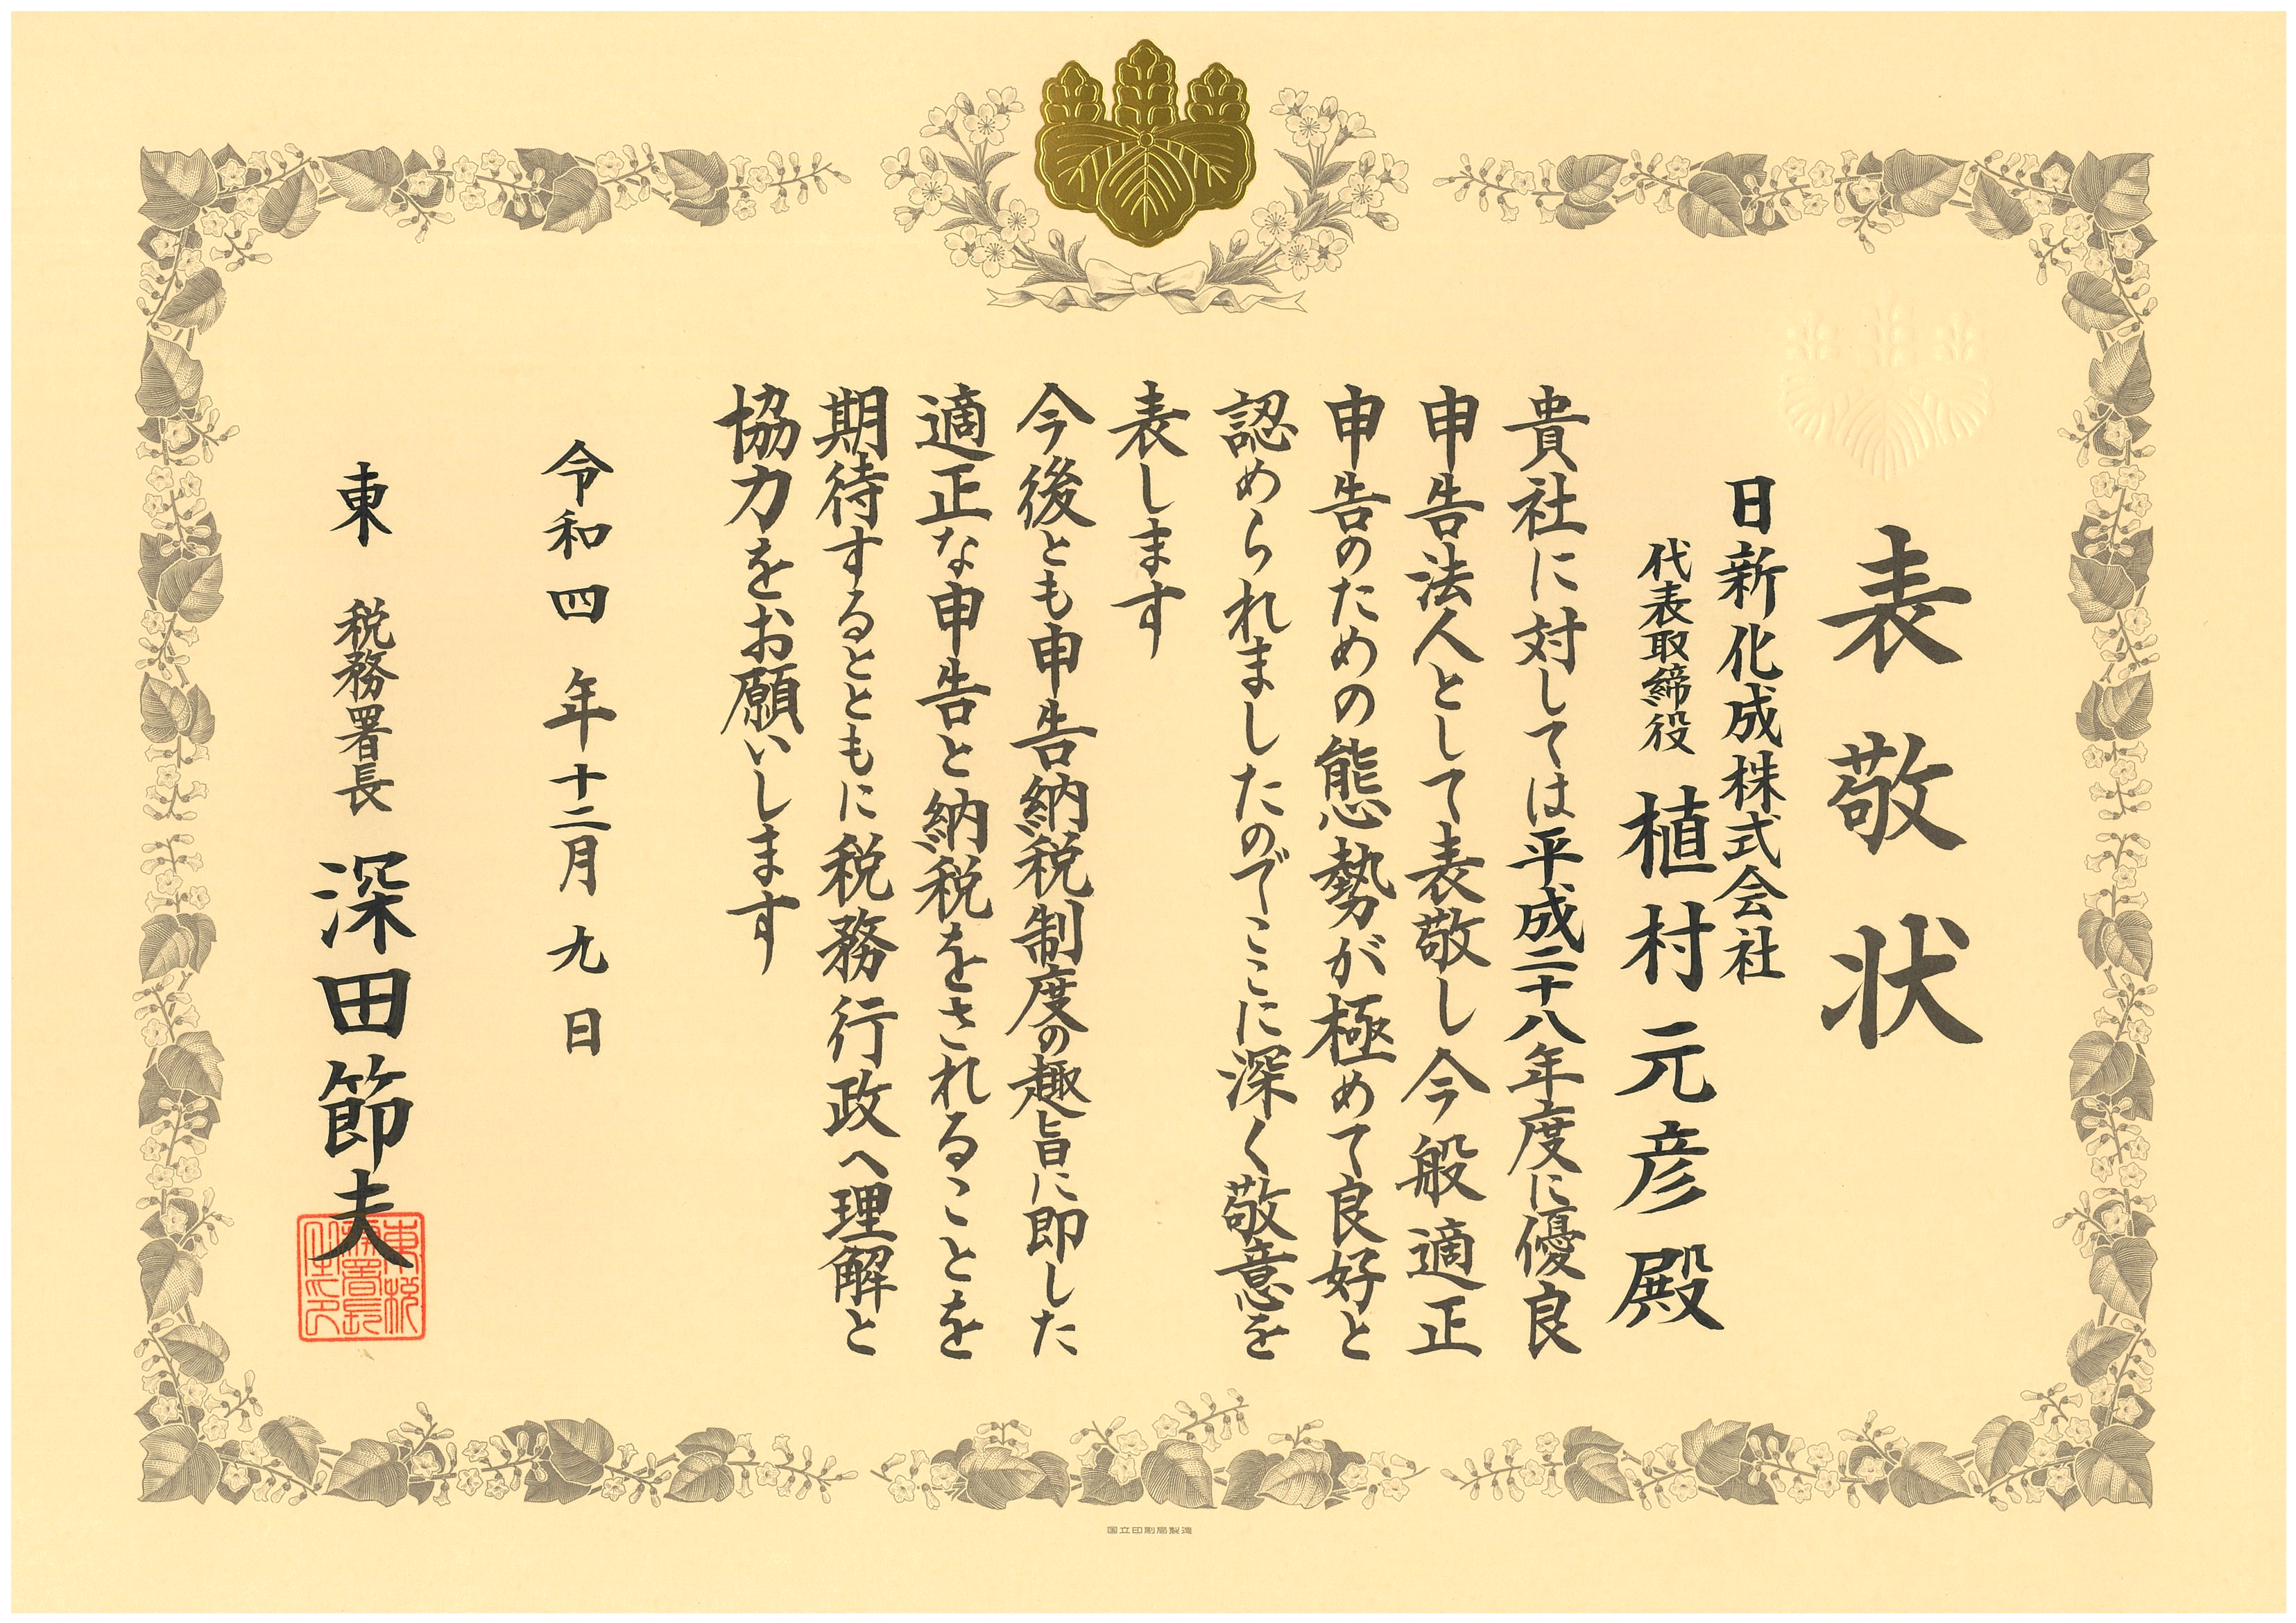 表敬状
日新化成株式会社
代表取締役 植村元彦殿
貴社に対しては平成二十八年度に優良
申告法人として表敬し今般適正
申告のための態勢が極めて良好と
認められましたのでここに深く敬意を
表します
今後とも申告納税制度の趣旨に即した
適正な申告と納税をされることを
期待するとともに税務行政へ理解と
協力をお願いします
令和四年十二月九日
東 税務署長 深田節夫
東税務署長之印
国立印刷局製造